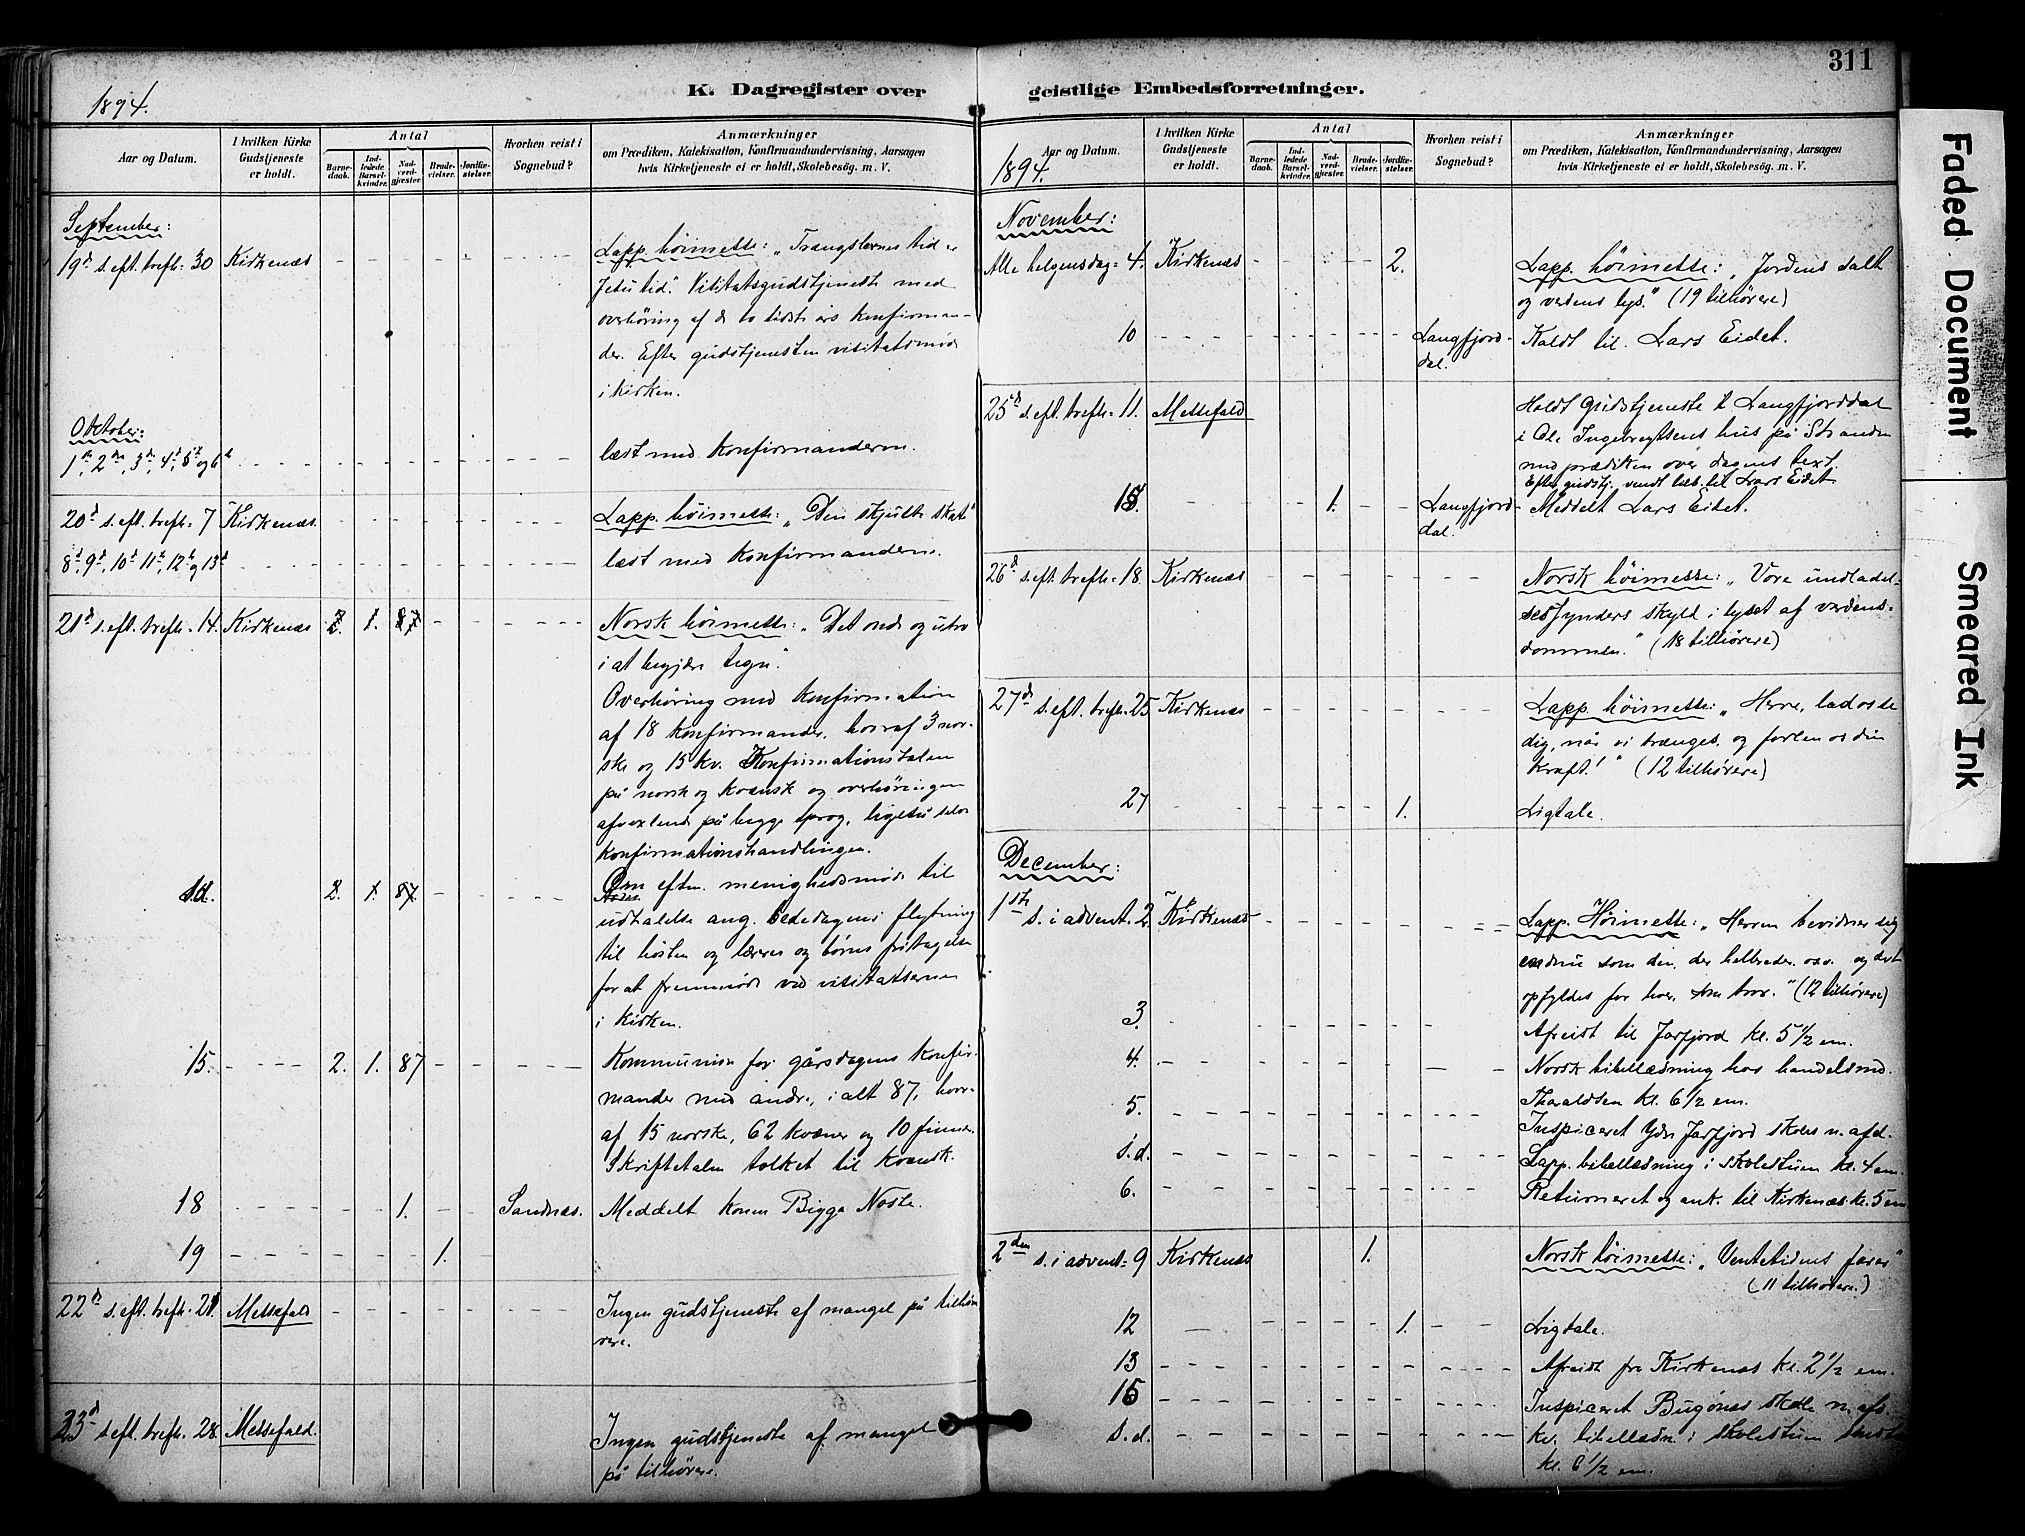 311
K. Dagregister over geistlige Embedsforretninger.
1894.
Aar og Datum.
I hvilken Kirke
Gudstjeneste
er holdt.
Antal
Barne-
daab.
Ind-
ledede
Barsel-
kvinder.
Nad-
verd-
gjester.
Brude-
vielser.
Jordfæ-
stelser.
Hvorhen reist i
Sognebud?
Anmærkninger
om Prædiken, Katekisation, Konfirmandundervisning, Aarsagen
hvis Kirketjeneste ei er holdt, Skolebesög. m. V.
September:
19d s. eft. trefh. 30 Kirkenæs
Lapp. høimesse: „Trængslernes tid er
Jesu tid." Visitatsgudstjeneste med
overhøring af de to sidste års konfirman-
der. Efter gudstjenesten visitatsmøde
i kirken.
Oktober:
1ste, 2den, 3d, 4d, 5te og 6te
læst med konfirmanderne.
20d s. eft. trefh. 7 Kirkenæs.
Lapp. høimesse: „Den skjulte skat"
8d, 9d, 10d 11te, 12te og 13d
læst med konfirmanderne.
21d s. eft. trefh. 14. Kirkenæs 2. 1. 87
Norsk høimesse: „Det onde og utro
i at begjære tegn."
Overhøring med konfirmation
af 18 konfirmander, hvoraf 3 nor-
ske og 15 kv. Konfirmationstalen
på norsk og kvænsk og overhøringen
afvexlende på begge sprog, ligeså selve
konfirmationshandlingen.
s.d. 2. 1. 87.
Om eftm. menighedsmøde til
udtalelse ang. bededagens flytning
til høsten og læreres og børns fritagelse
for at fremmøde ved visitatserne
i kirken.
15. 2. 1. 87
Kommunion for gårsdagens konfir-
mander med andre, i alt 87, hvor-
af 15 norske, 62 kvæner og 10 finner.
Skriftetalen tolket til kvænsk.
18 1. Sandnæs. Meddelt konen Bigga Noste.
19 1.
22d s. eft. trefh. 21. Messefald
Ingen gudstjeneste af mangel på tilhø-
rere.
23d s. eft. trefh. 28. Messefald.
Ingen gudstjeneste af mangel
på tilhørere.
1894.
Aar og Datum.
I hvilken Kirke
Gudstjeneste
er holdt.
Antal
Barne-
daab.
Ind-
ledede
Barsel-
kvinder.
Nad-
verd-
gjester.
Brude-
vielser.
Jordfæ-
stelser.
Hvorhen reist i
Sognebud?
Anmærkninger
om Prædiken, Katekisation, Konfirmandundervisning, Aarsagen
hvis Kirketjeneste ei er holdt, Skolebesög. m. V.
November:
Alle helgensdag 4. Kirkenæs 2.
Lapp. høimesse: „Jordens salt
og verdens lys." (19 tilhørere)
10 Langfjord-
dal.
Kaldt til Lars Eidet.
25d s. eft. trefh. 11. Messefald
Holdt gudstjeneste i Langfjorddal
i Ole Ingebregtsens hus på Stranden
med prædiken over dagens text.
Efter gudstj. vendt tilb. til Lars Eidet
15. 1. Langfjord-
dal.
Meddelt Lars Eidet.
26d s. eft. trefh. 18. Kirkenæs
Norsk høimesse: „Vore undladel-
sessynders skyld i lyset af verdens-
dommen." (18 tilhørere)
27d s. eft. trefh. 25 Kirkenæs
Lapp. høimesse: „Herre, lad os se
dig, når vi trænges, og forlen os din
kraft!" (12 tilhørere)
27 1. Ligtale.
December:
1ste s. i advent. 2 Kirkenæs
Lapp. Høimesse: „Herren bevidner sig
endnu som den, der helbreder o.s.v. og det
opfyldes for hver, som tror." (12 tilhørere)
3. Afreist til Jarfjord kl. 5 1/2 em.
4. Norsk bibellæsning hos handelsmd.
Tharaldsen kl. 6 1/2 em.
5. Inspiceret Ydre Jarfjord skoles n. afd.
s.d. Lapp. bibellæsning i skolestuen kl. 4 em.
6. Returneret og ank. til Kirkenæs kl. 5 em
2den s. i advent 9 Kirkenæs 1.
Norsk høimesse: „Ventetidens farer"
(11 tilhørere.)
12 1. Ligtale.
13 Afreist fra Kirkenæs kl. 2 1/2 em.
15 Inspiceret Bugönæs skole n. afd.
s.d. kv. bibellæsn. i skolestuen
kl. 6 1/2 em.
Faded Document
Smeared Ink